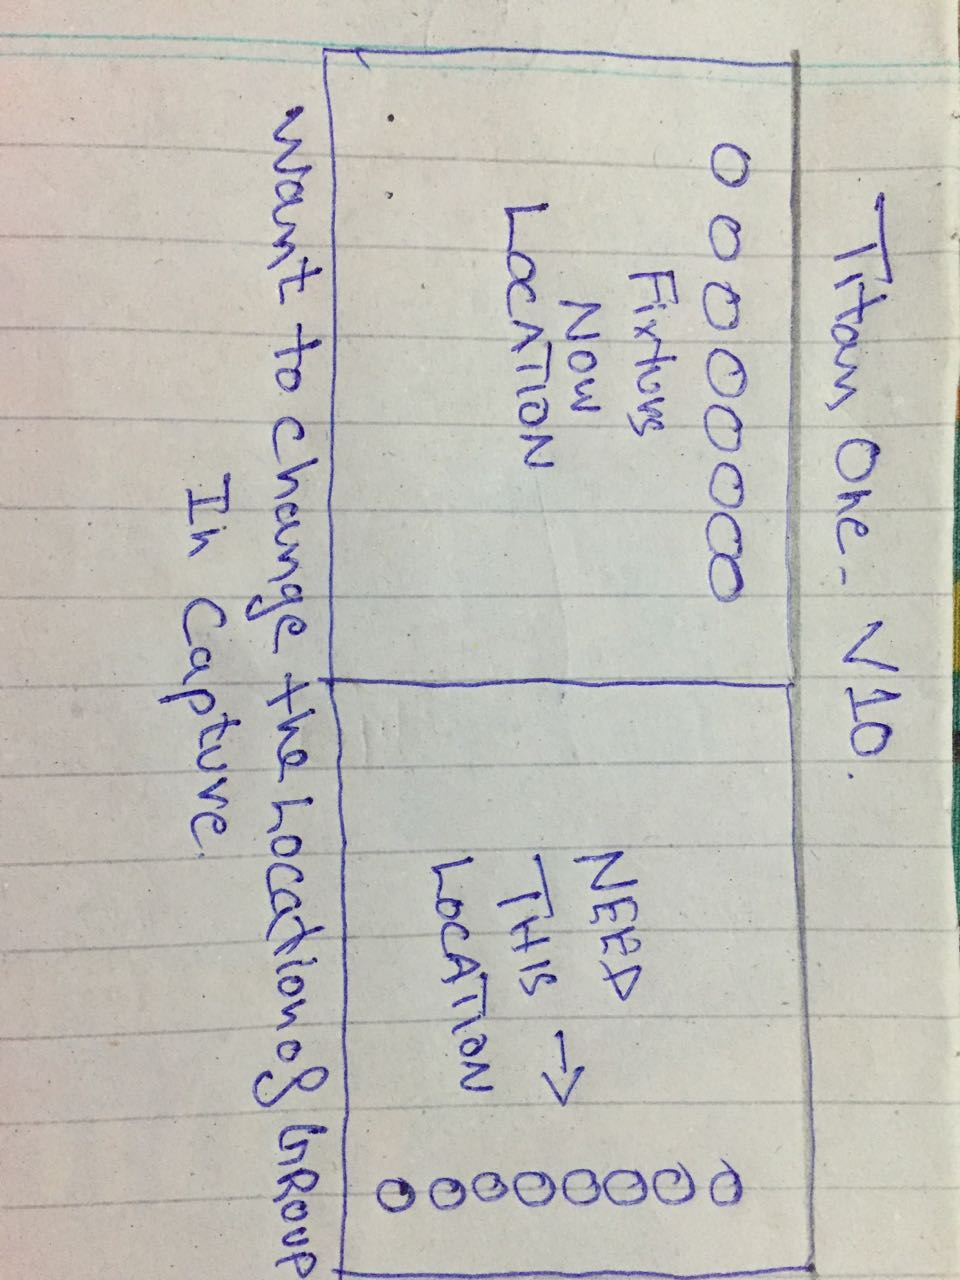 Titan One - V10.
Fixturs
NOW
LOCATION
NEED
THIS →
LOCATION
Want to change the Location of GROUP
In Capture.